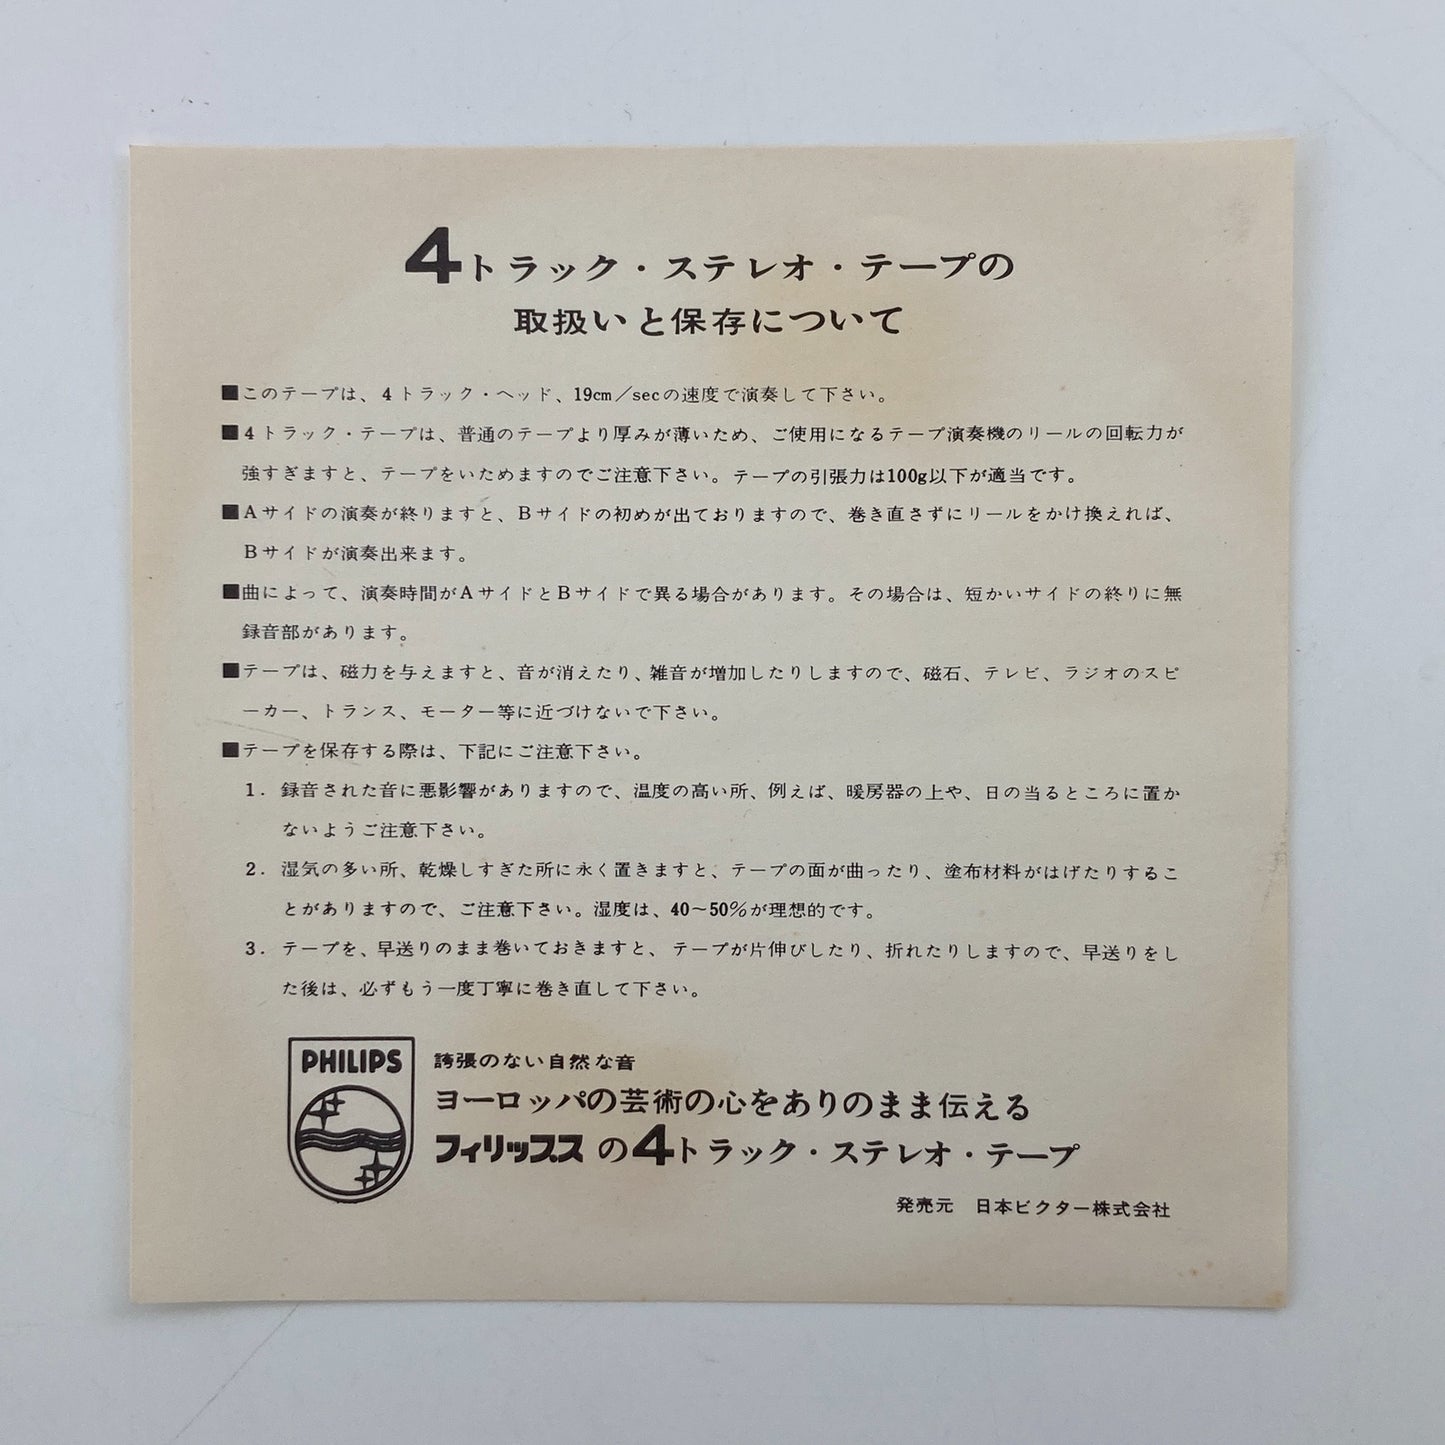 4トラック・ステレオ・テープの
取扱いと保存について
■このテープは、4トラック・ヘッド、19cm/secの速度で演奏して下さい。
■4トラック・テープは、普通のテープより厚みが薄いため、ご使用になるテープ演奏機のリールの回転力が
強すぎますと、テープをいためますのでご注意下さい。テープの引張力は100g以下が適当です。
■Aサイドの演奏が終りますと、Bサイドの初めが出ておりますので、巻き直さずにリールをかけ換えれば、
Bサイドが演奏出来ます。
■曲によって、演奏時間がAサイドとBサイドで異る場合があります。その場合は、短かいサイドの終りに無
録音部があります。
■テープは、磁力を与えますと、音が消えたり、雑音が増加したりしますので、磁石、テレビ、ラジオのスピ
ーカー、トランス、モーター等に近づけないで下さい。
■テープを保存する際は、下記にご注意下さい。
1. 録音された音に悪影響がありますので、温度の高い所、例えば、暖房器の上や、日の当るところに置か
ないようご注意下さい。
2. 湿気の多い所、乾燥しすぎた所に永く置きますと、テープの面が曲ったり、塗布材料がはげたりするこ
とがありますので、ご注意下さい。湿度は、40〜50%が理想的です。
3. テープを、早送りのまま巻いておきますと、テープが片伸びしたり、折れたりしますので、早送りをし
た後は、必ずもう一度丁寧に巻き直して下さい。
PHILIPS
誇張のない自然な音
ヨーロッパの芸術の心をありのまま伝える
フィリップスの4トラック・ステレオ・テープ
発売元 日本ビクター株式会社